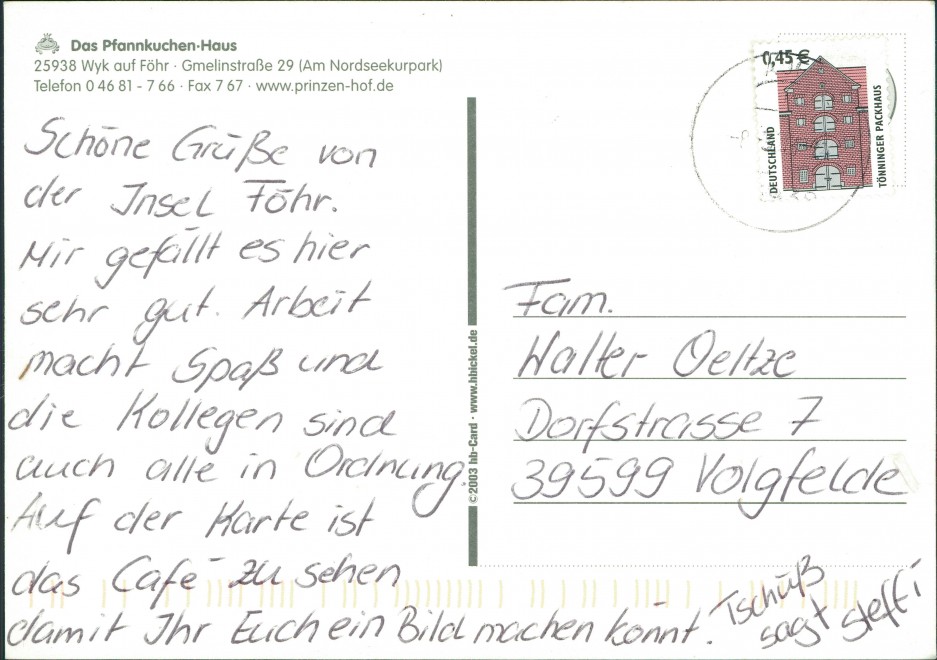 Das Pfannkuchen·Haus
25938 Wyk auf Föhr · Gmelinstraße 29 (Am Nordseekurpark)
Telefon 0 46 81 - 7 66 · Fax 7 67 · www.prinzen-hof.de
Schöne Grüße von
der Insel Föhr.
Mir gefällt es hier
sehr gut. Arbeit
macht Spaß und
die Kollegen sind
auch alle in Ordnung.
Auf der Karte ist
das Café zu sehen
damit Ihr Euch ein Bild machen könnt.
Tschüß
sagt Steffi
© 2003 hb-Card · www.hbickel.de
0,45 €
DEUTSCHLAND
TÖNNINGER PACKHAUS
Fam.
Walter Oeltze
Dorfstrasse 7
39599 Volgfelde